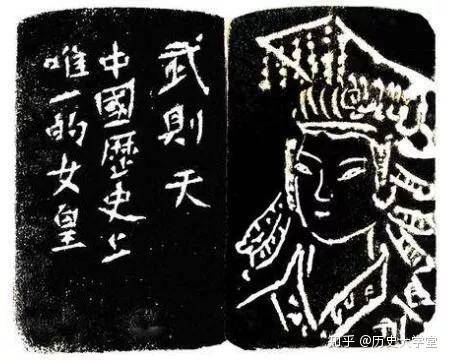 武則天
中國歷史上
唯一的女皇
知乎 @历史大学堂